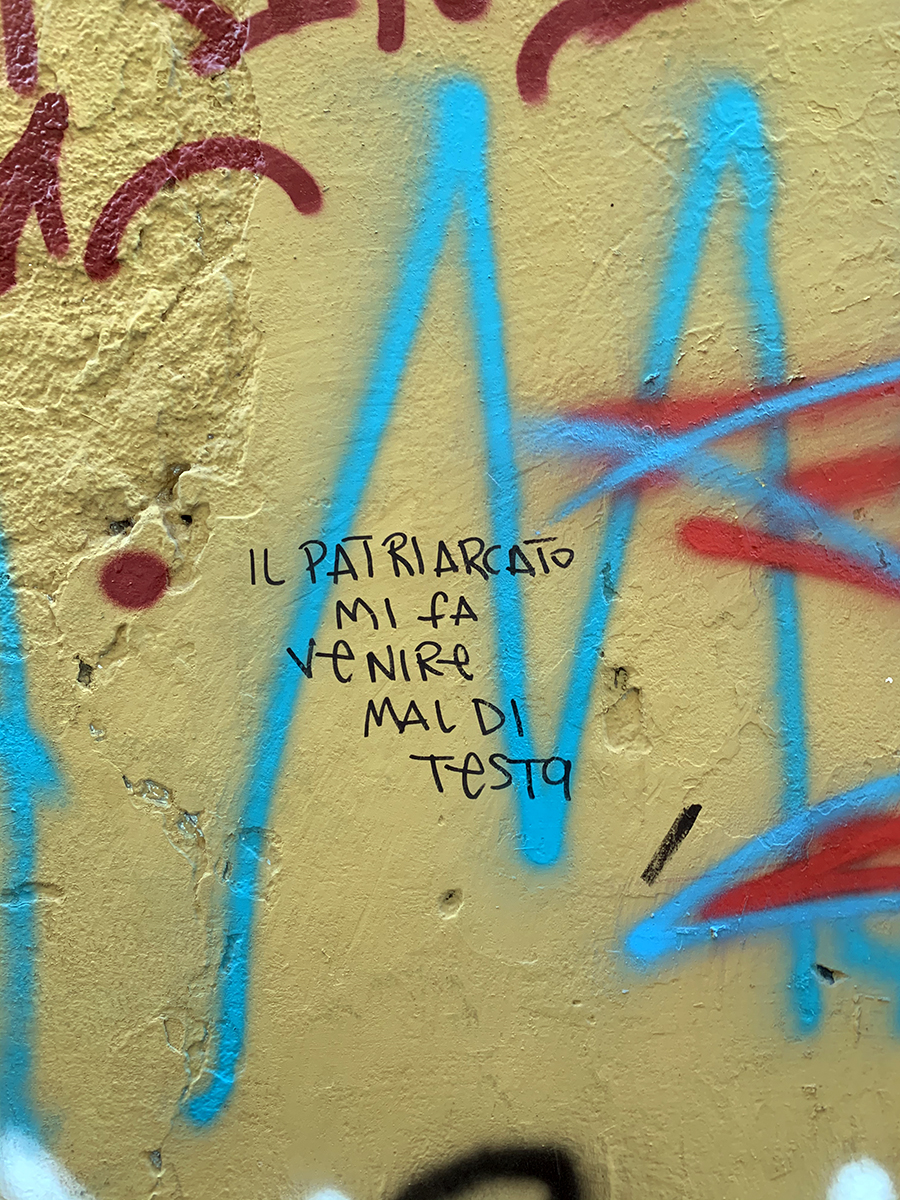 IL PATRIARCATO
MI fA
VeNIRe
MAL DI
TesTa
M